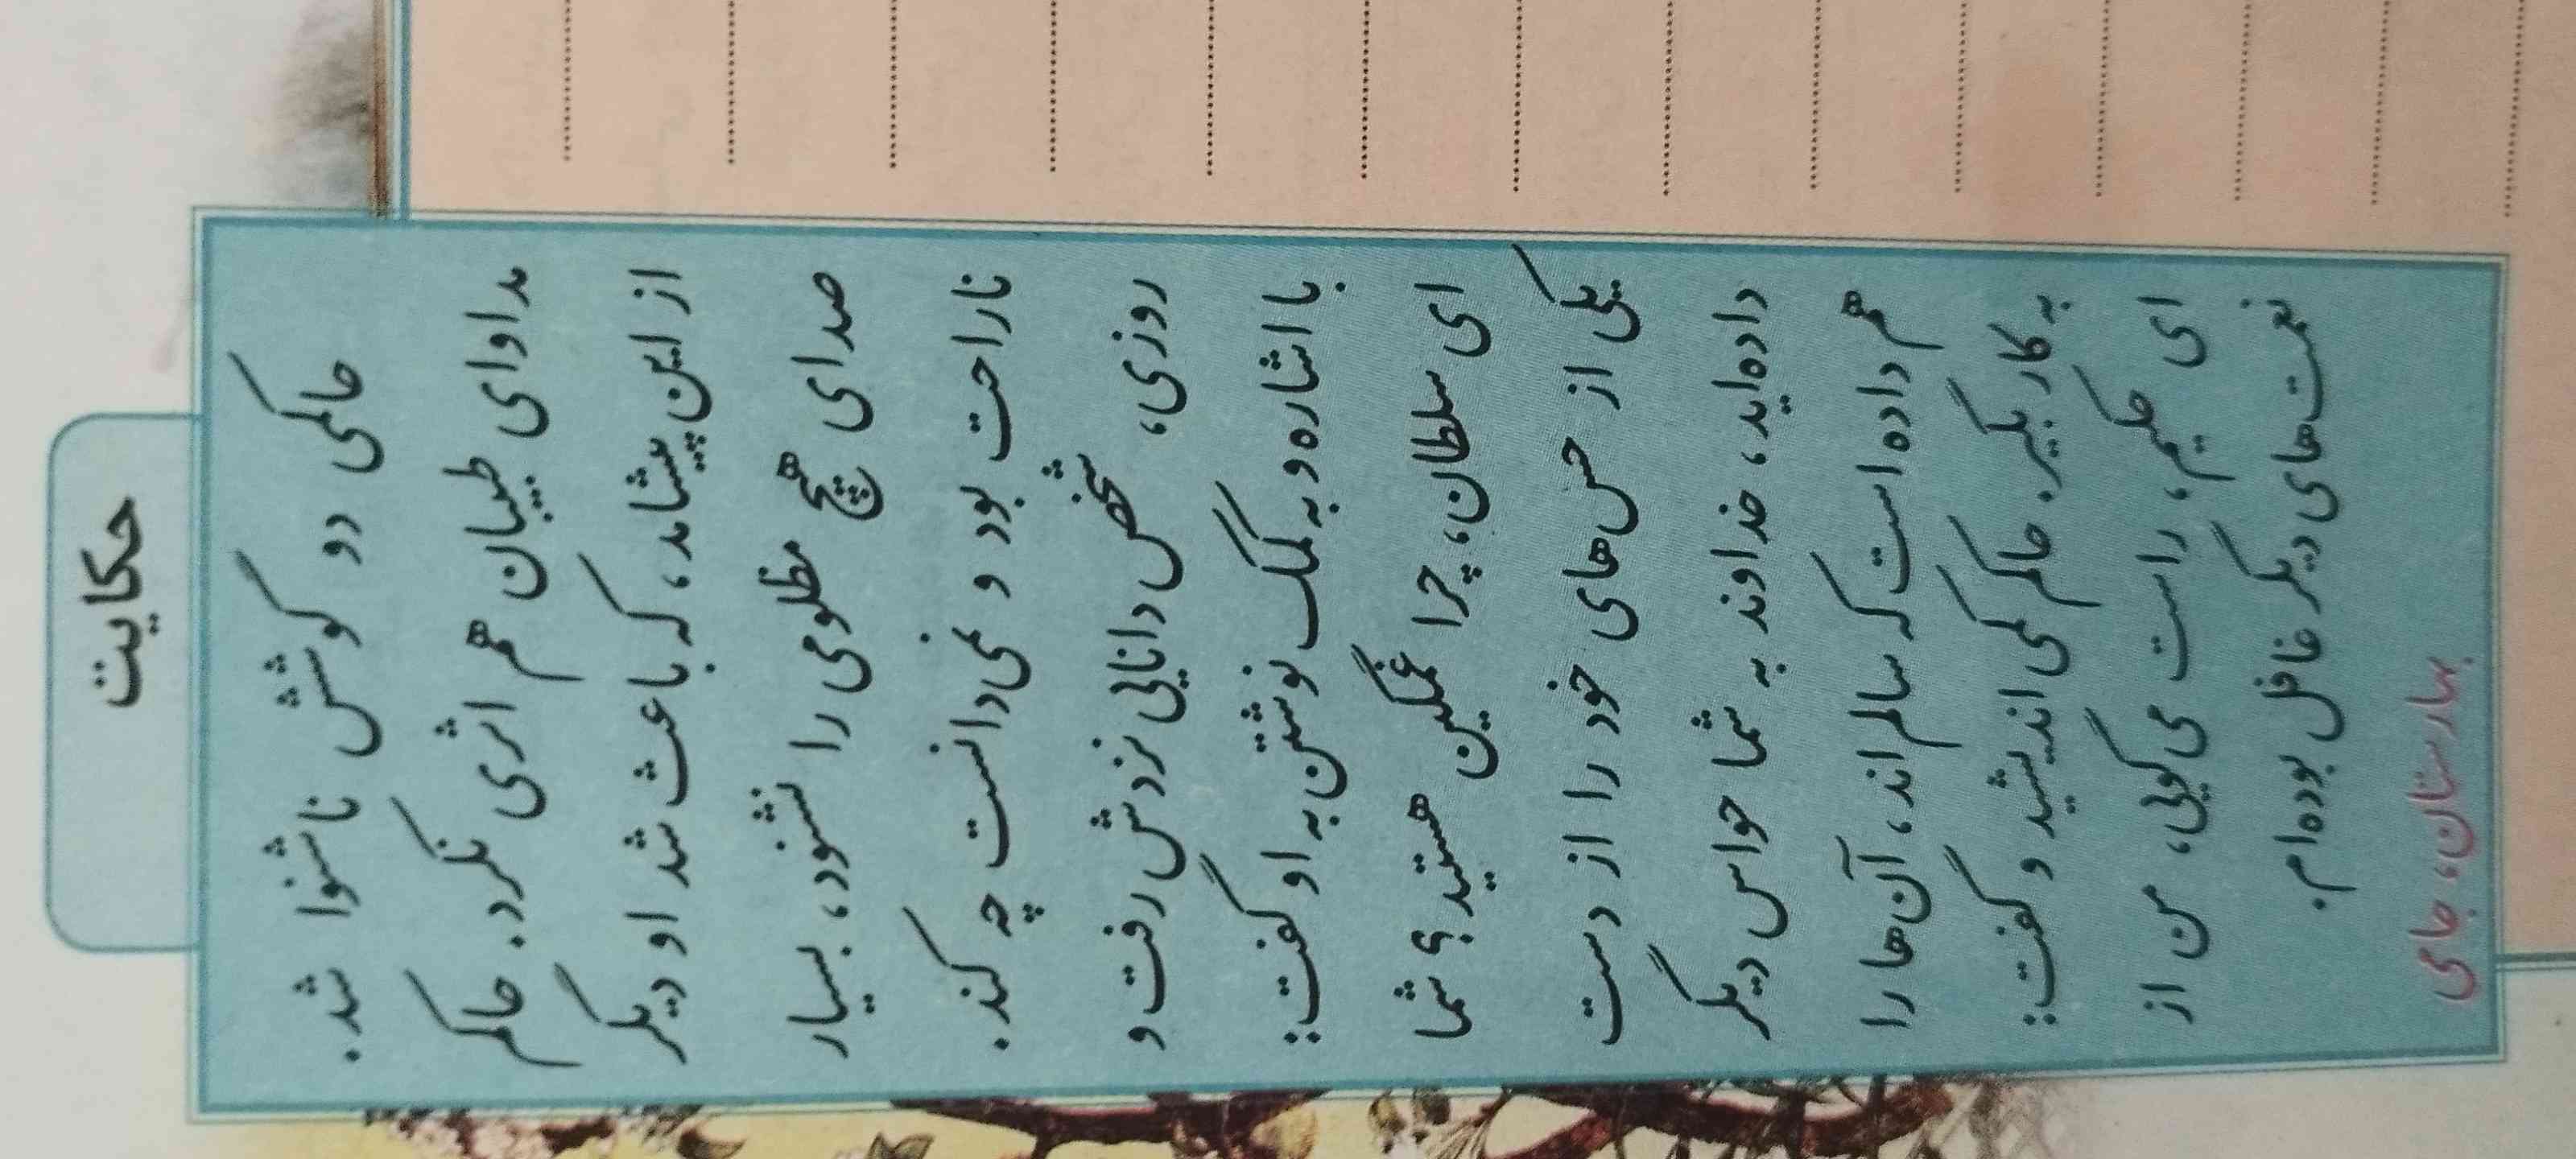 حکایت
حاکمی دو گوشش ناشنوا شد.
مداوای طبیبان هم اثری نکرد. حاکم
از این پیشامد، که باعث شد او دیگر
صدای هیچ مظلومی را نشنود، بسیار
ناراحت بود و نمی‌دانست چه کند.
روزی، شخص دانایی نزدش رفت و
با اشاره و به کمک نوشتن به او گفت:
ای سلطان، چرا غمگین هستید؟ شما
یکی از حس‌های خود را از دست
داده‌اید، خداوند به شما حواس دیگر
هم داده است که سالم‌اند، آن‌ها را
به کار بگیر. حاکم کمی اندیشید و گفت:
ای حکیم، راست می‌گویی، من از
نعمت‌های دیگر غافل بوده‌ام.
بهارستان، جامی